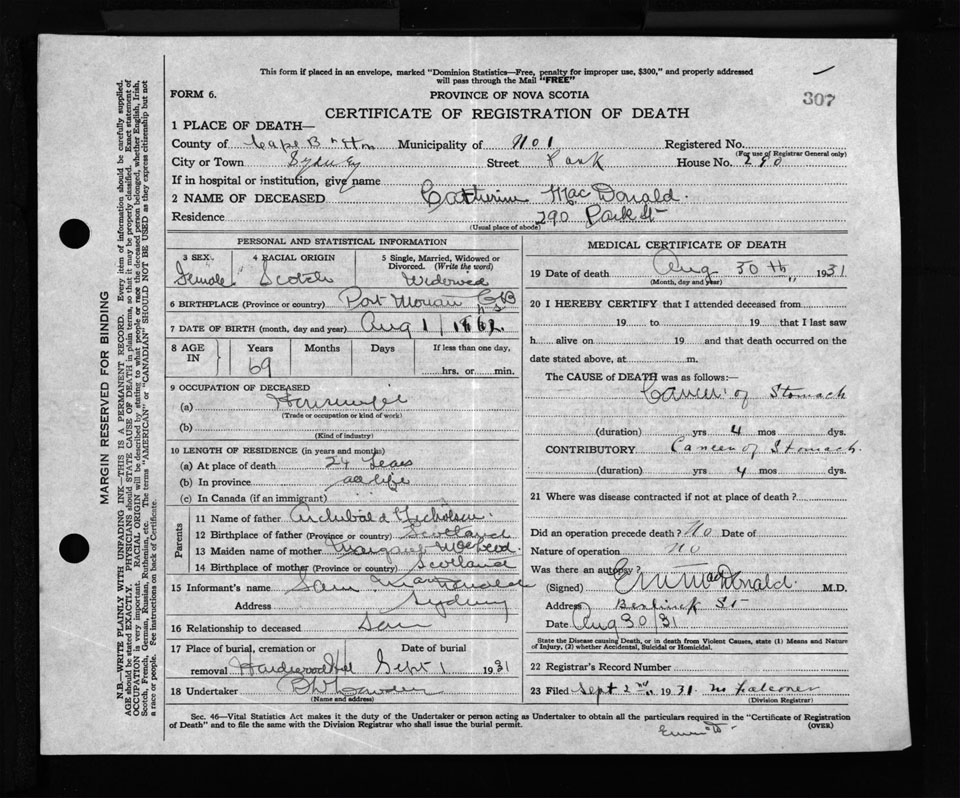 This form if placed in an envelope, marked "Dominion Statistics—Free, penalty for improper use, $300," and properly addressed
will pass through the Mail "FREE"
307
FORM 6.
PROVINCE OF NOVA SCOTIA
CERTIFICATE OF REGISTRATION OF DEATH
1 PLACE OF DEATH—
County of Cape Breton Municipality of No 1 Registered No.
(For use of Registrar General only)
City or Town Sydney Street Park House No. 290
If in hospital or institution, give name
2 NAME OF DECEASED Catherine MacDonald.
Residence 290 Park St
(Usual place of abode)
PERSONAL AND STATISTICAL INFORMATION
3 SEX 4 RACIAL ORIGIN 5 Single, Married, Widowed or
Divorced. (Write the word)
Female Scotch Widowed
6 BIRTHPLACE (Province or country) Port Morien CB
N S
7 DATE OF BIRTH (month, day and year) Aug 1 1862
8 AGE IN Years Months Days If less than one day,
69 hrs. or min.
9 OCCUPATION OF DECEASED
(a) Housewife
(Trade or occupation or kind of work)
(b)
(Kind of industry)
10 LENGTH OF RESIDENCE (in years and months)
(a) At place of death 24 Years
(b) In province all life
(c) In Canada (if an immigrant)
Parents
11 Name of father Archibald Nicholson.
12 Birthplace of father (Province or country) Scotland
13 Maiden name of mother Margaret McLeod.
14 Birthplace of mother (Province or country) Scotland
15 Informant's name Sam MacDonald
Address Sydney
16 Relationship to deceased Son
17 Place of burial, cremation or Date of burial
removal Hardwood Hill Sept 1 1931
18 Undertaker
(Name and address)
MEDICAL CERTIFICATE OF DEATH
19 Date of death Aug 30th, 1931
(Month, day and year)
20 I HEREBY CERTIFY that I attended deceased from
19 to 19 that I last saw
h alive on 19 and that death occurred on the
date stated above, at m.
The CAUSE OF DEATH was as follows:
Cancer of Stomach
(duration) yrs 4 mos dys.
CONTRIBUTORY Cancer of Stomach.
(duration) yrs 4 mos dys.
21 Where was disease contracted if not at place of death?
Did an operation precede death? No Date of
Nature of operation No
Was there an autopsy?
(Signed) MacDonald. M.D.
Address Bentinck St
Date Aug 30/31
State the Disease causing Death, or in death from Violent Causes, state (1) Means and Nature
of Injury, (2) whether Accidental, Suicidal or Homicidal.
22 Registrar's Record Number
23 Filed Sept 2nd 1931. M Falconer
(Division Registrar)
Sec. 46—Vital Statistics Act makes it the duty of the Undertaker or person acting as Undertaker to obtain all the particulars required in the "Certificate of Registration
of Death" and to file the same with the Division Registrar who shall issue the burial permit.
(OVER)
MARGIN RESERVED FOR BINDING
N.B.—WRITE PLAINLY WITH UNFADING INK—THIS IS A PERMANENT RECORD. Every item of information should be carefully supplied.
AGE should be stated EXACTLY. PHYSICIANS should STATE CAUSE OF DEATH in plain terms, so that it may be properly classified. Exact statement of
OCCUPATION is very important. RACIAL ORIGIN will be described by stating to what people or race the deceased person belonged, whether English, Irish,
Scotch, French, German, Russian, Ruthenian, etc. The terms "AMERICAN" or "CANADIAN" SHOULD NOT BE USED as they express citizenship but not
a race or people. See instructions on back of Certificate.